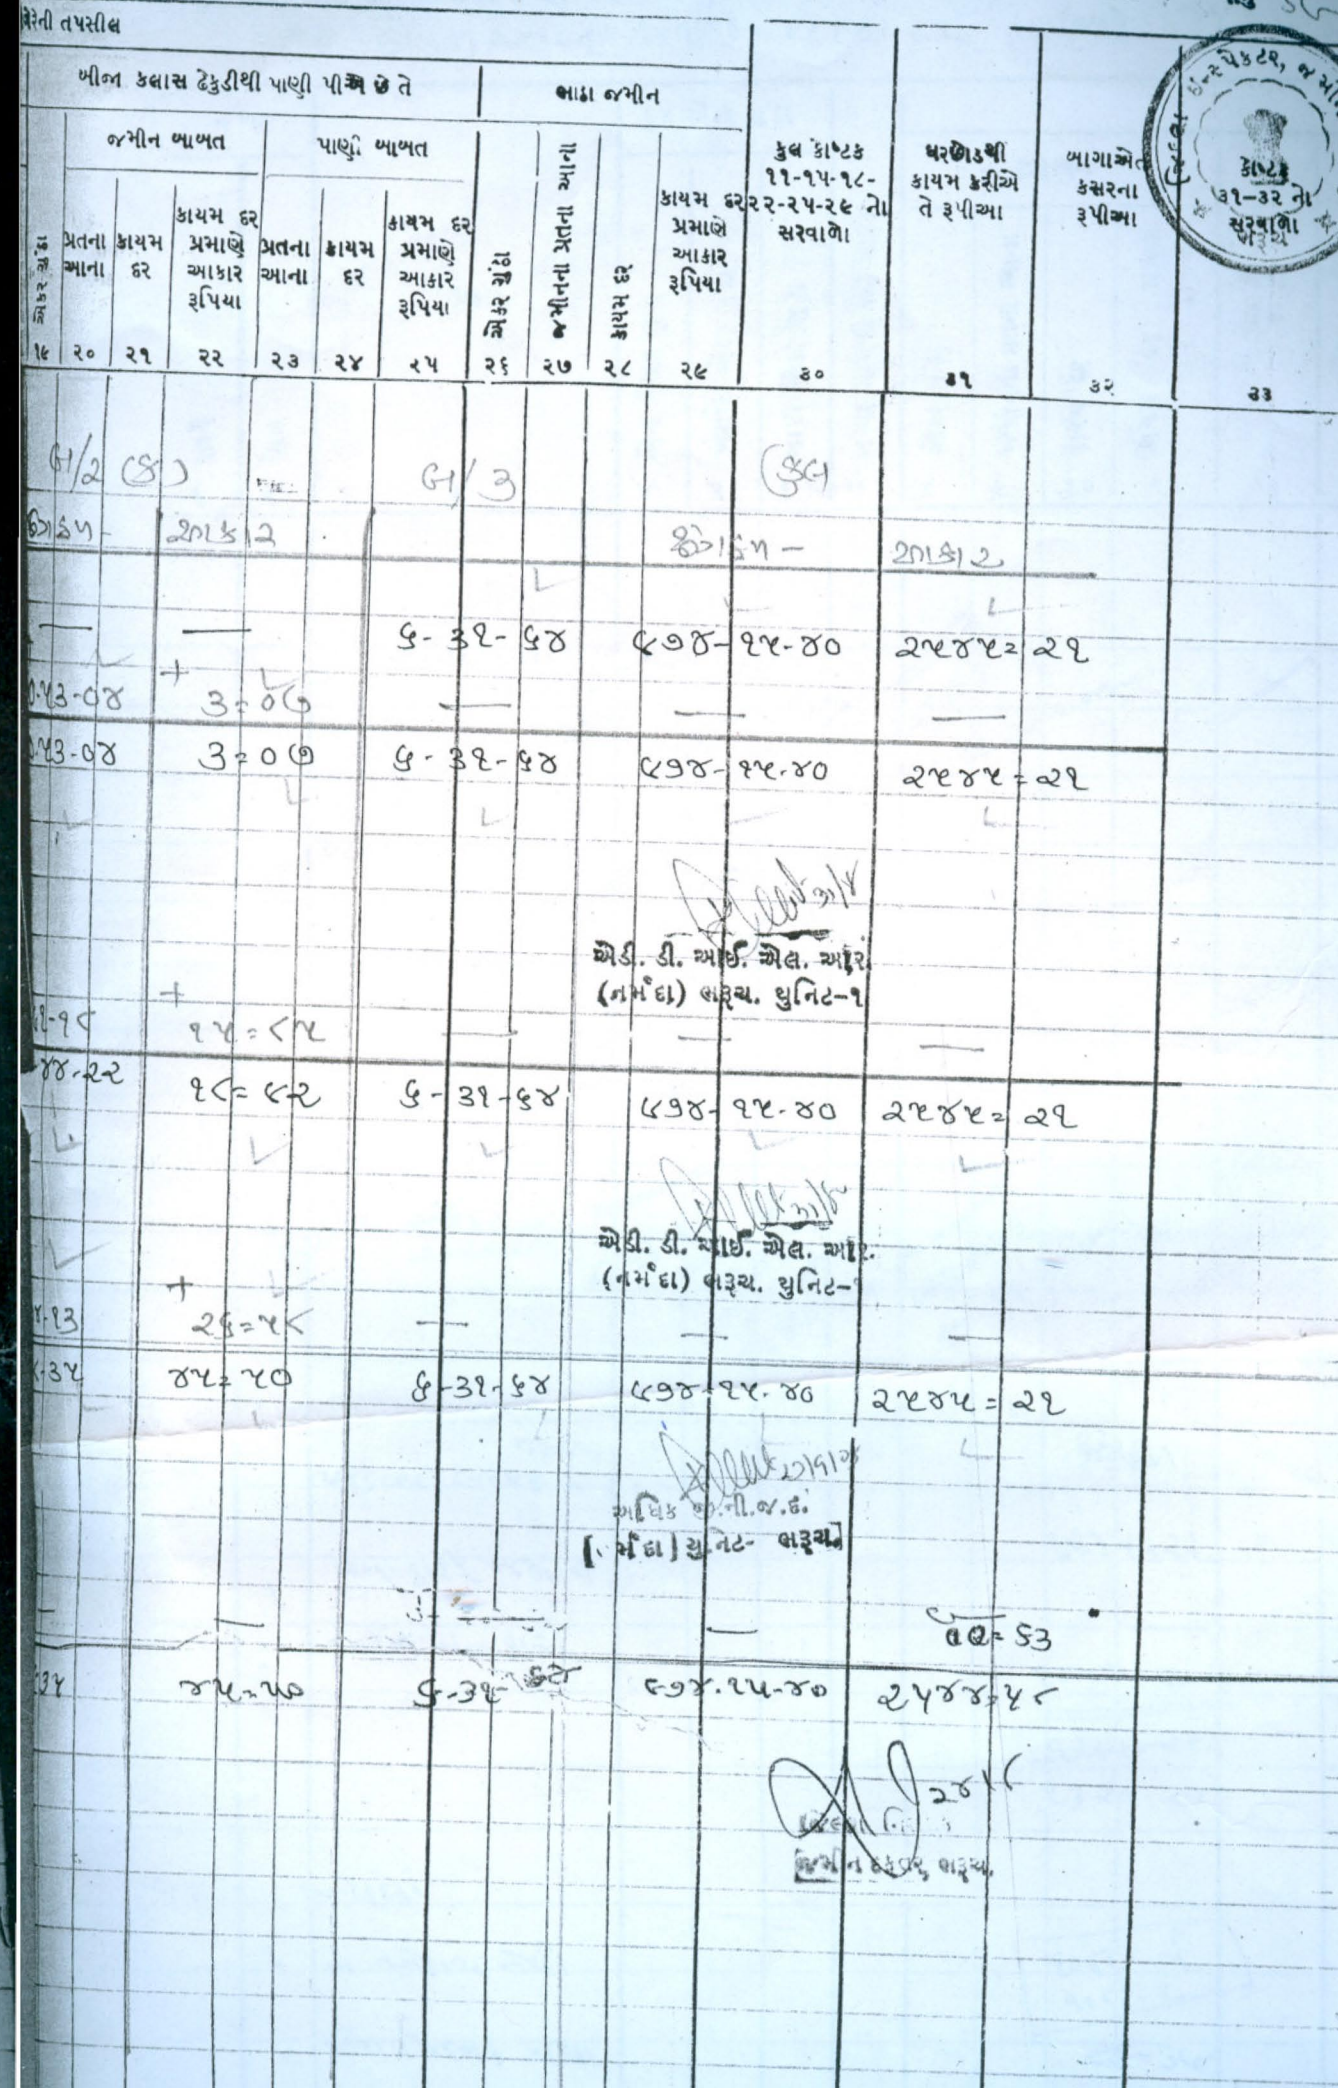 રેની તપસીલ
બીજા ક્લાસ ઢેકુડીથી પાણી પીએ છે તે
ભાઠા જમીન
જમીન બાબત
પાણી બાબત
એકર ગુંઠા
પ્રતના આના
કાયમ દર
કાયમ દર પ્રમાણે આકાર રૂપિયા
પ્રતના આના
કાયમ દર
કાયમ દર પ્રમાણે આકાર રૂપિયા
એકર ગુંઠા
જમીનના પ્રતના આના
કાયમ દર
કાયમ દર પ્રમાણે આકાર રૂપિયા
કુલ કોષ્ટક ૧૧-૧૫-૧૮-૨૨-૨૫-૨૯ નો સરવાળો
ઘરછોડથી કાયમ કરીએ તે રૂપીઆ
બાગાએત કસરના રૂપીઆ
કોષ્ટક ૩૧-૩૨ નો સરવાળો
ઇન્સ્પેકટર, જમીન
ભરૂચ
૧૯ ૨૦ ૨૧ ૨૨ ૨૩ ૨૪ ૨૫ ૨૬ ૨૭ ૨૮ ૨૯ ૩૦ ૩૧ ૩૨ ૩૩
બ/૨ (ક) બ/૩ કુલ
આકાર આકાર
— — ૬-૩૧-૬૪ ૯૭૪-૧૫-૪૦ ૨૫૪૫=૨૧
૦-૫૩-૦૪ + ૩=૦૭ — — —
૦-૫૩-૦૪ ૩=૦૭ ૬-૩૧-૬૪ ૯૭૪-૧૫-૪૦ ૨૫૪૫=૨૧
એડી. ડી. આઈ. એલ. આર.
(નર્મદા) ભરૂચ. યુનિટ-૧
-૧૮ + ૧૫=૮૫ — — —
-૪૪-૨૨ ૧૮=૯૨ ૬-૩૧-૬૪ ૯૭૪-૧૫-૪૦ ૨૫૪૫=૨૧
એડી. ડી. આઈ. એલ. આર.
(નર્મદા) ભરૂચ. યુનિટ-૧
-૧૩ + ૨૬=૫૮ — — —
-૩૫ ૪૫=૫૦ ૬-૩૧-૬૪ ૯૭૪-૧૫-૪૦ ૨૫૪૫=૨૧
અધિક જી.ની.જ.દ.
મંદા) યુનિટ- ભરૂચ
— — — =૬૩
૩૫ ૪૫=૫૦ ૬-૩૧-૬૪ ૯૭૪-૧૫-૪૦ ૨૫૪૪=૫૮
જમીન દફતર, ભરૂચ.